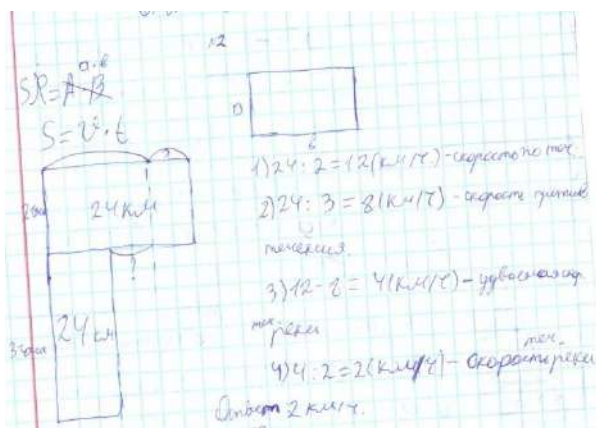 12
a·b
SR=A·B
S=V·t
a
b
2 часа
24 км
?
?
3 часа
24 км
1) 24 : 2 = 12 (км/ч) - скорость по теч.
2) 24 : 3 = 8 (км/ч) - скорость против
течения.
3) 12 - 8 = 4 (км/ч) - удвоенная ск.
теч. реки
4) 4 : 2 = 2 (км/ч) - скорость теч. реки
Ответ 2 км/ч.